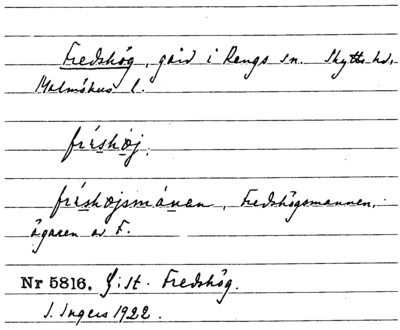 Fredshög, gård i Rängs sn. Skytts hd,
Malmöhus l.
fréshøj.
fréshøjsmánan, Fredshögsmannen,
ägaren av F.
Nr 5816. G: st. Fredshög.
I. Ingers 1922.